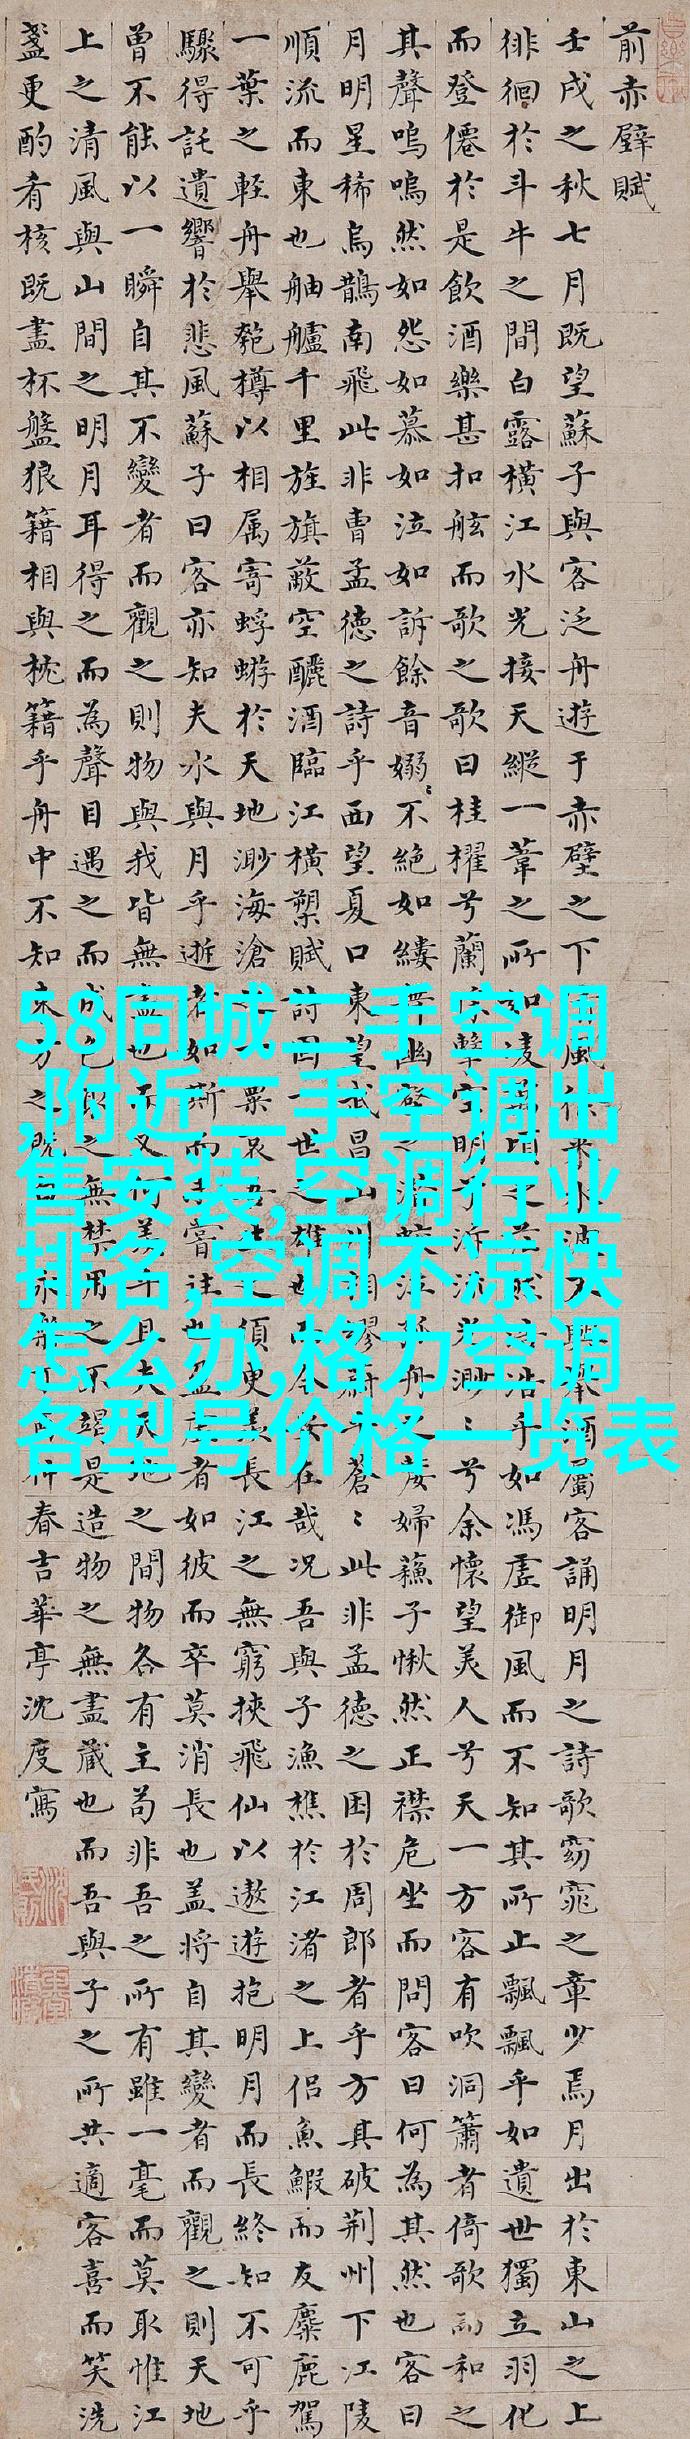 前赤壁賦
壬戌之秋七月既望蘇子與客泛舟遊于赤壁之下清風徐來水波不興舉酒屬客誦明月之詩歌窈窕之章少焉月出於東山之上
徘徊於斗牛之間白露橫江水光接天縱一葦之所如凌萬頃之茫然浩浩乎如馮虛御風而不知其所止飄飄乎如遺世獨立羽化
而登僊於是飲酒樂甚扣舷而歌之歌曰桂櫂兮蘭槳擊空明兮泝流光渺〻兮余懷望美人兮天一方客有吹洞簫者倚歌而和之
其聲嗚嗚然如怨如慕如泣如訴餘音嫋〻不絕如縷舞幽壑之潛蛟泣孤舟之嫠婦蘇子愀然正襟危坐而問客曰何為其然也客曰
月明星稀烏鵲南飛此非曹孟德之詩乎西望夏口東望武昌山川相繆鬱乎蒼〻此非孟德之困於周郎者乎方其破荊州下江陵
順流而東也舳艫千里旌旗蔽空釃酒臨江橫槊賦詩固一世之雄也而今安在哉況吾與子漁樵於江渚之上侶魚鰕而友麋鹿駕
一葉之輕舟舉匏樽以相属寄蜉蝣於天地渺海滄之一粟哀吾生之須臾羨長江之無窮挾飛仙以遨遊抱明月而長終知不可乎
驟得託遺響於悲風蘇子曰客亦知夫水與月乎逝者如斯而未嘗往也盈虛者如彼而卒莫消長也盖將自其變者而觀之則天地
曾不能以一瞬自其不變者而觀之則物與我皆無盡也而又何羨乎且夫天地之間物各有主苟非吾之所有雖一毫而莫取惟江
上之清風與山間之明月耳得之而為聲目遇之而成色取之無禁用之不竭是造物之無盡藏也而吾與子之所共適客喜而笑洗
盞更酌肴核既盡杯盤狼籍相與枕籍乎舟中不知東方之既白
仲春吉華亭沈度寫
58同城二手空调
,附近二手空调出
售安装,空调行业
排名,空调不凉快
怎么办,格力空调
各型号价格一览表